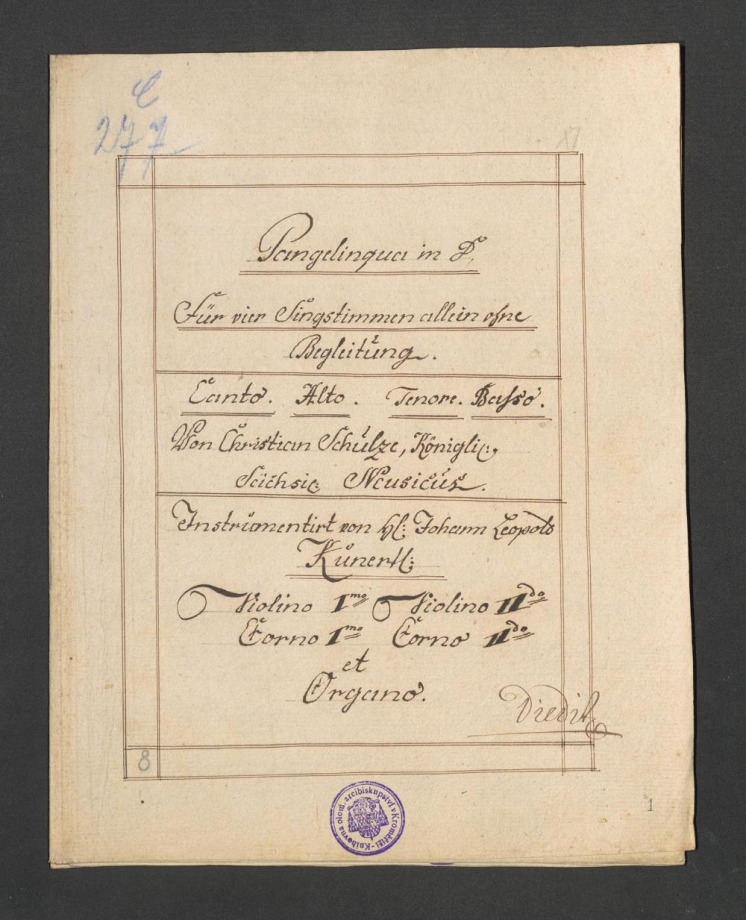 C
277
17
Pangelingua in D.
Für vier Singstimmen allein ohne
Begleitung.
Canto. Alto. Tenore. Basso.
Von Christian Schulze, Königlic:
Sächsic: Musicus.
Instrumentirt von H: Johann Leopold
Kunert:
Violino I^mo Violino II^do
Corno I^mo Corno II^do
et
Organo.
8
Knihovna olom. arcibiskupství v Kroměříži
1